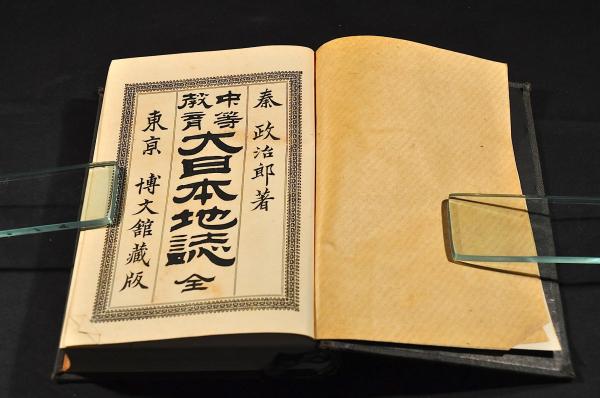 秦政治郎著
中等教育
大日本地誌 全
東京 博文館藏版